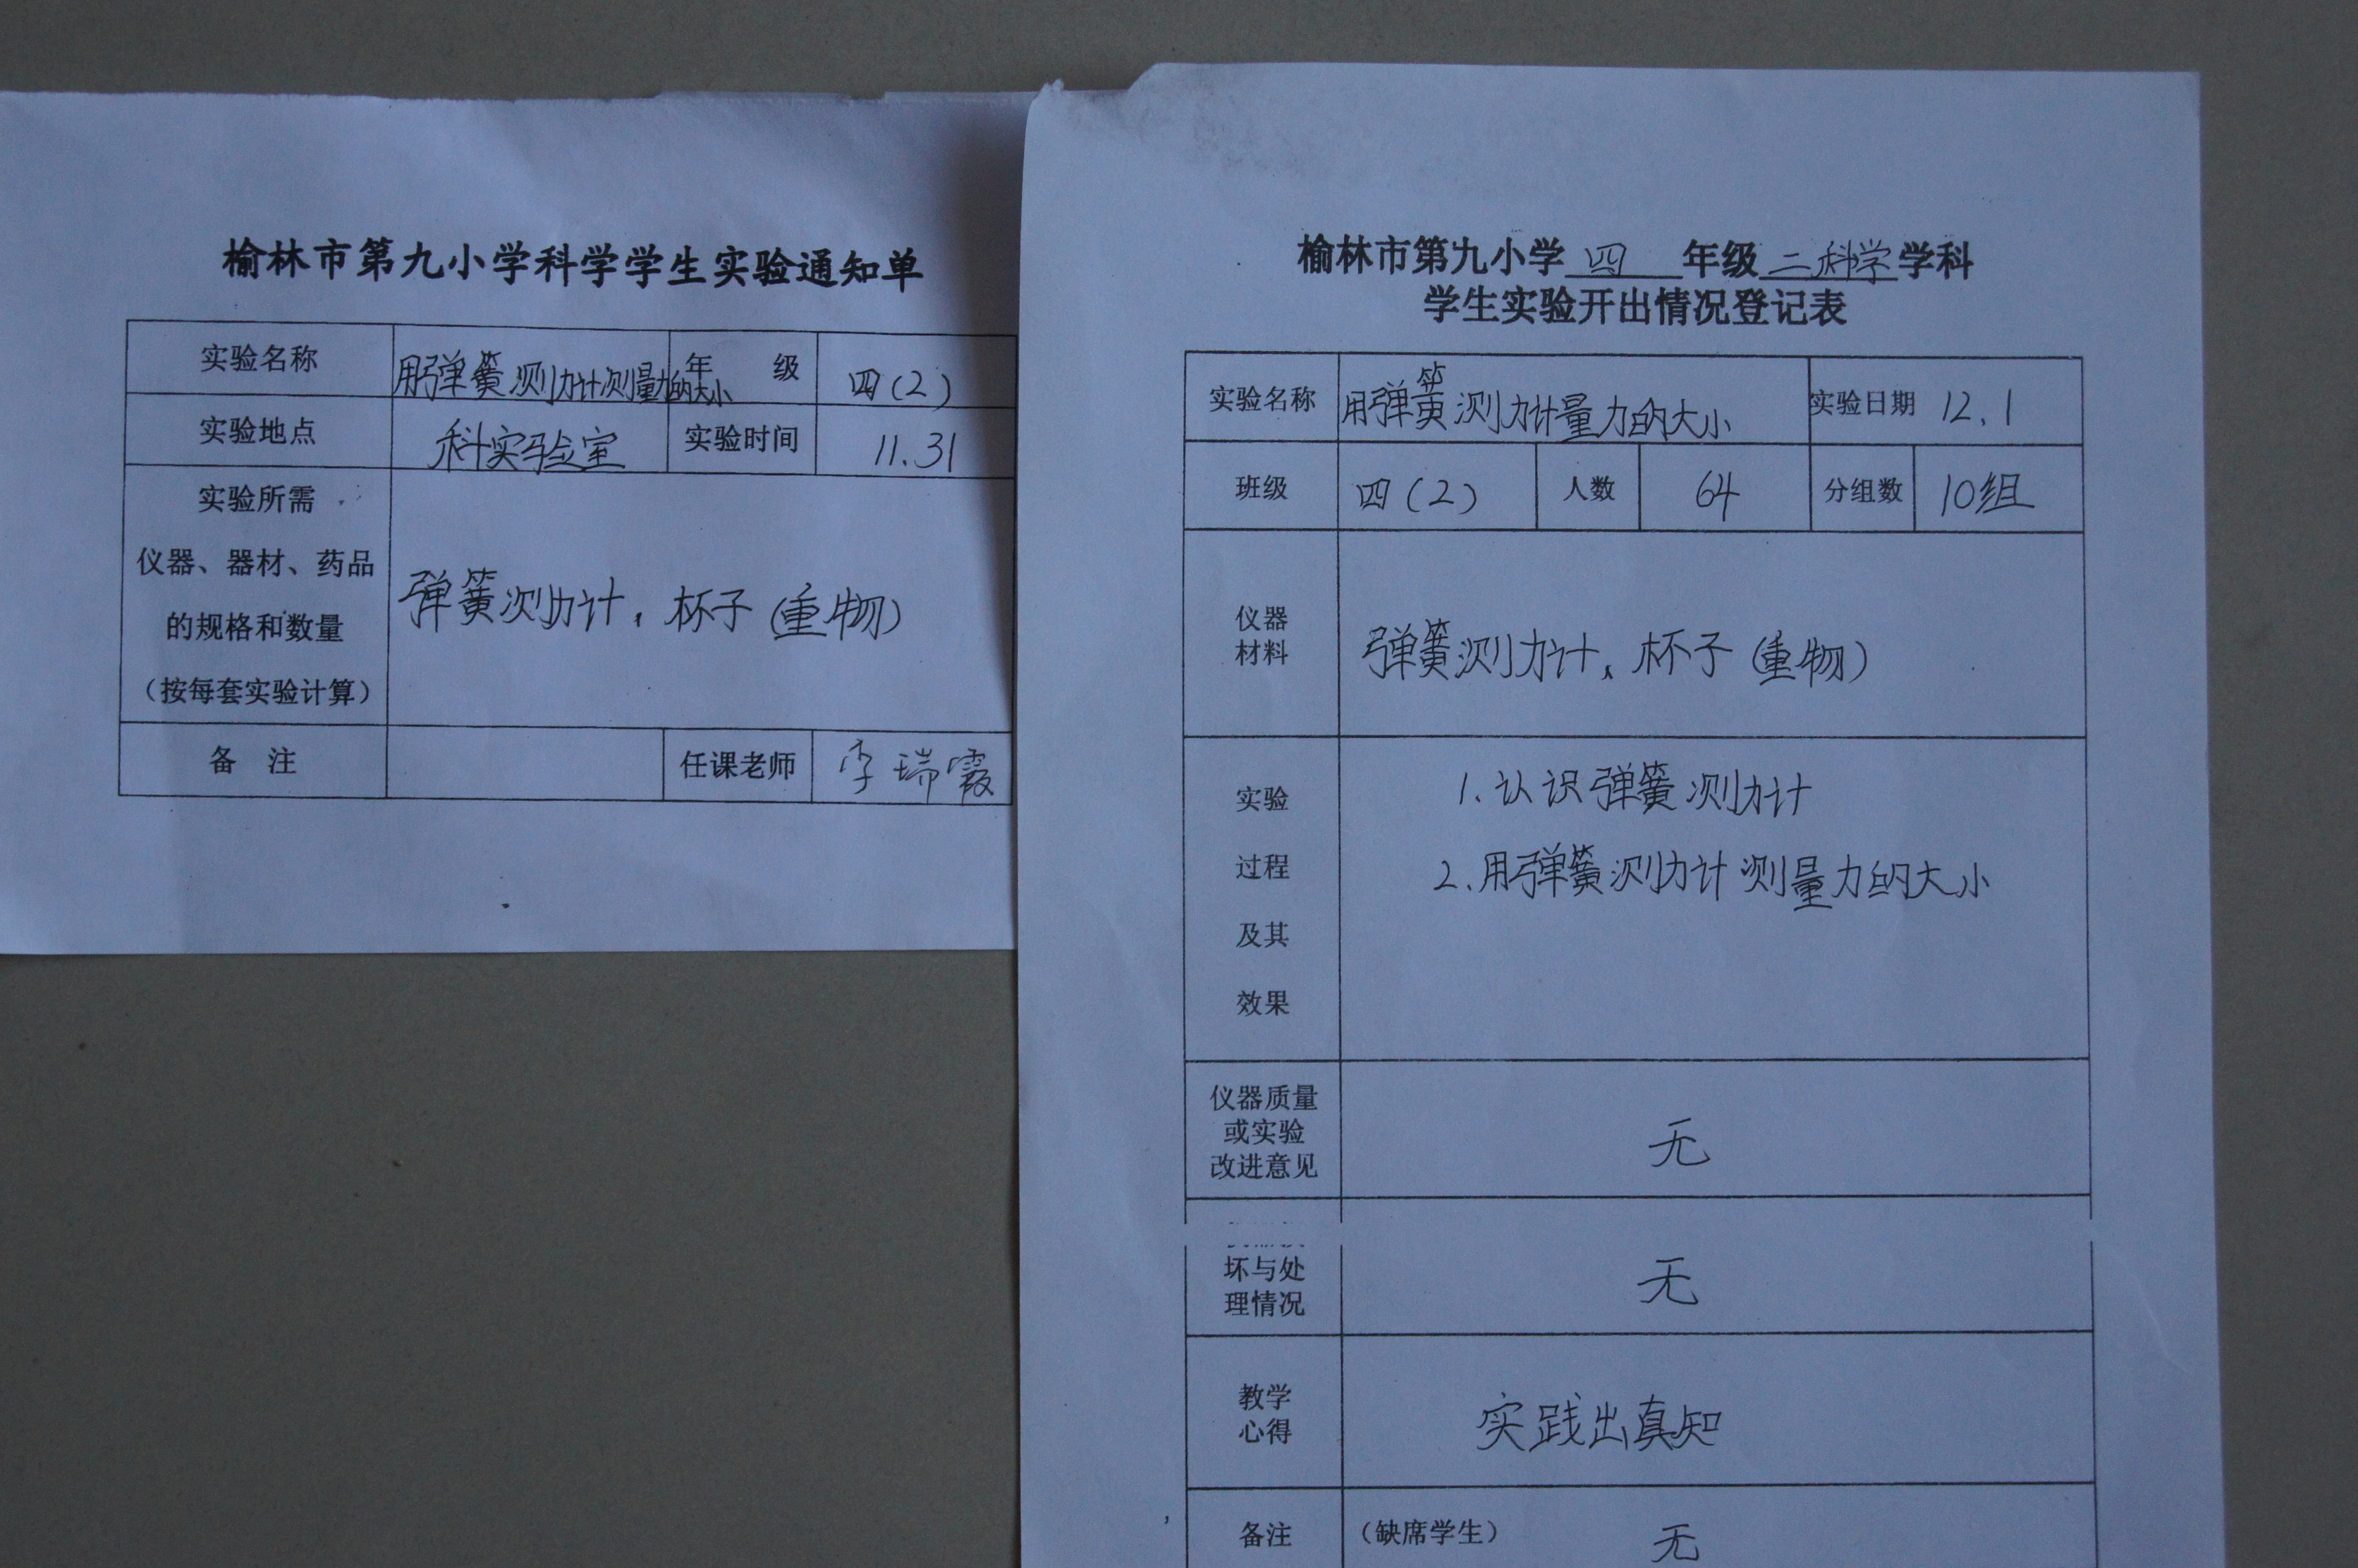 榆林市第九小学科学学生实验通知单
实验名称 用弹簧测力计测量力的大小 年 级 四(2)
实验地点 科实验室 实验时间 11.31
实验所需
仪器、器材、药品
的规格和数量
(按每套实验计算)
弹簧测力计，杯子(重物)
备 注 任课老师 李瑞霞
榆林市第九小学 四 年级 二科学 学科
学生实验开出情况登记表
实验名称 用弹簧测力计量力的大小 实验日期 12.1
班级 四(2) 人数 64 分组数 10组
仪器
材料
弹簧测力计、杯子(重物)
实验
过程
及其
效果
1.认识弹簧测力计
2.用弹簧测力计测量力的大小
仪器质量
或实验
改进意见
无
坏与处
理情况
无
教学
心得
实践出真知
备注 (缺席学生) 无